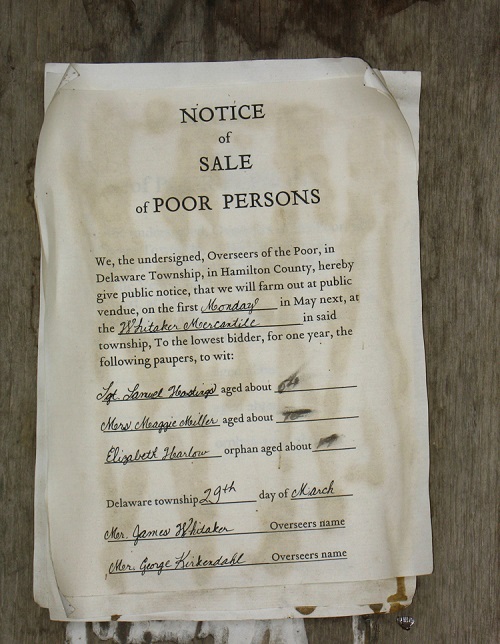 NOTICE
of
SALE
of POOR PERSONS
We, the undersigned, Overseers of the Poor, in
Delaware Township, in Hamilton County, hereby
give public notice, that we will farm out at public
vendue, on the first Monday in May next, at
the Whitaker Mercantile in said
township, To the lowest bidder, for one year, the
following paupers, to wit:
Sgt. Samuel Hastings aged about
Mrs Maggie Miller aged about
Elizabeth Harlow orphan aged about
Delaware township 29th day of March
Mr. James Whitaker Overseers name
Mr. George Kirkendahl Overseers name